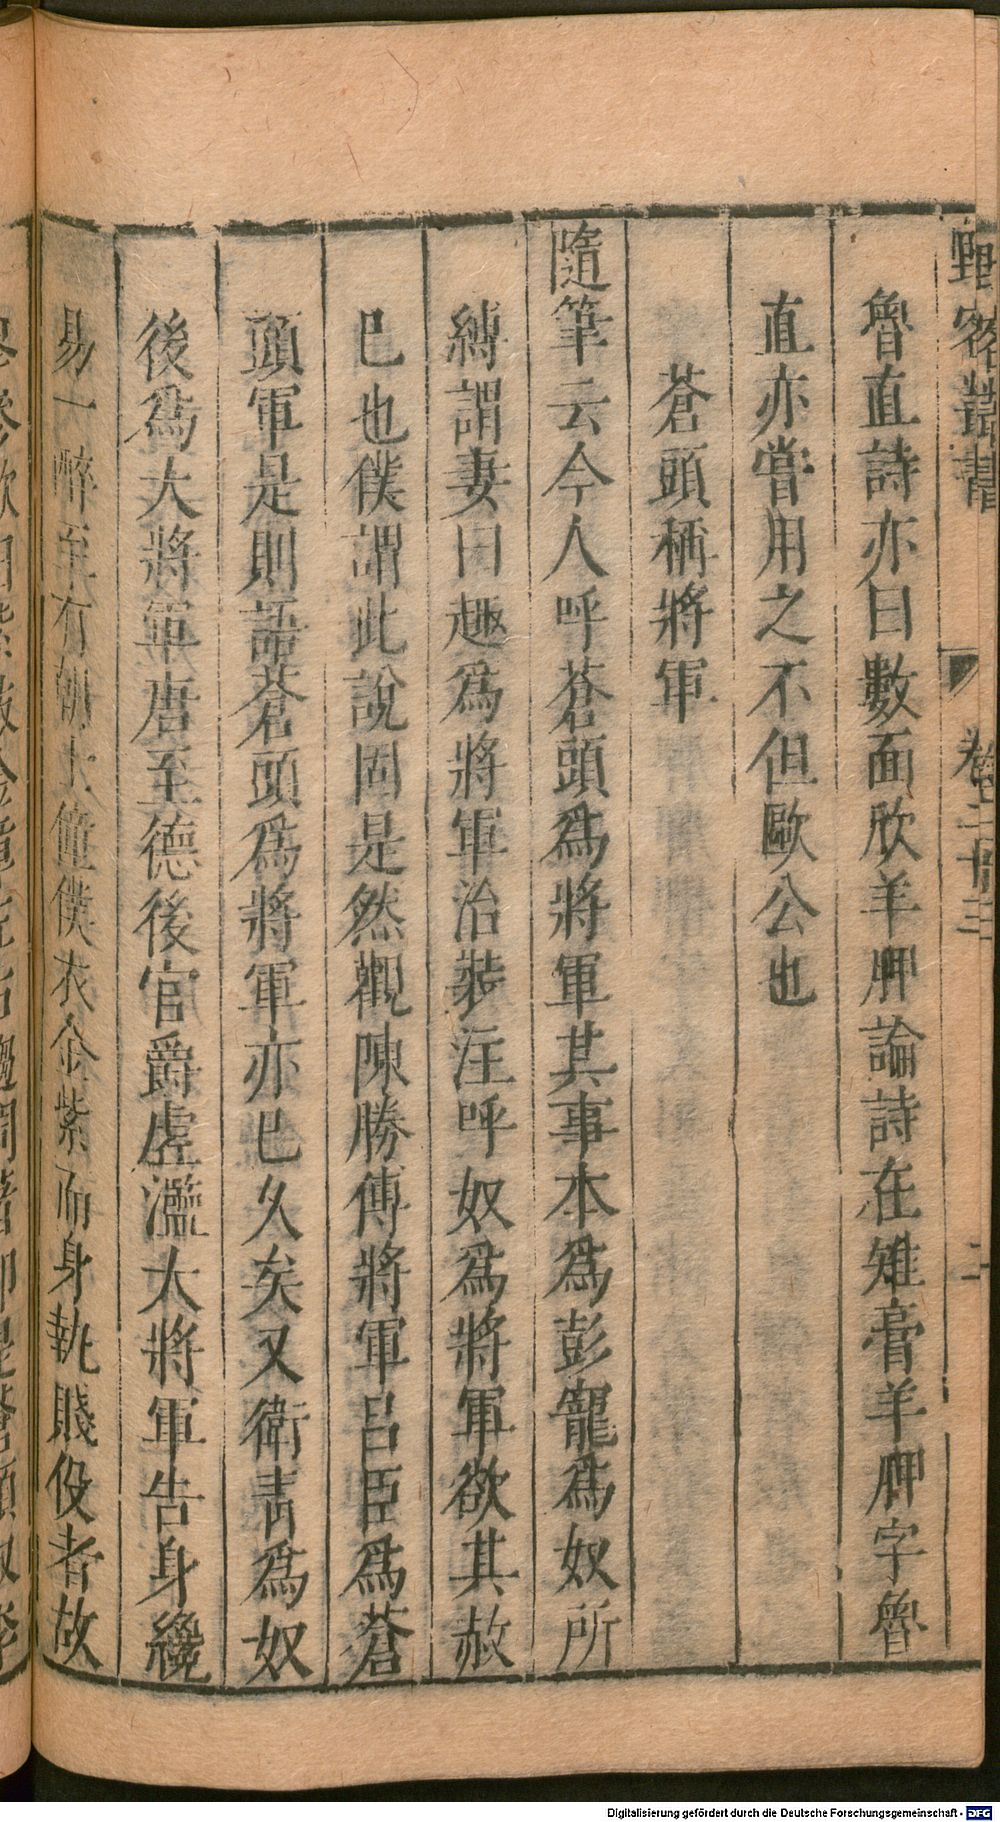 野客叢書 卷二十三 二
魯直詩亦曰數面欣羊胛論詩在雉膏羊胛字魯
直亦嘗用之不但歐公也
蒼頭稱將軍
隨筆云今人呼蒼頭爲將軍其事本爲彭寵爲奴所
縛謂妻曰趣爲將軍治裝注呼奴爲將軍欲其赦
已也僕謂此說固是然觀陳勝傳將軍呂臣爲蒼
頭軍是則語蒼頭爲將軍亦已久矣又衛青爲奴
後爲大將軍唐至德後官爵虛濫大將軍告身纔
易一醉至有朝士僮僕衣金紫而身執賤役者故
Digitalisierung gefördert durch die Deutsche Forschungsgemeinschaft - DFG